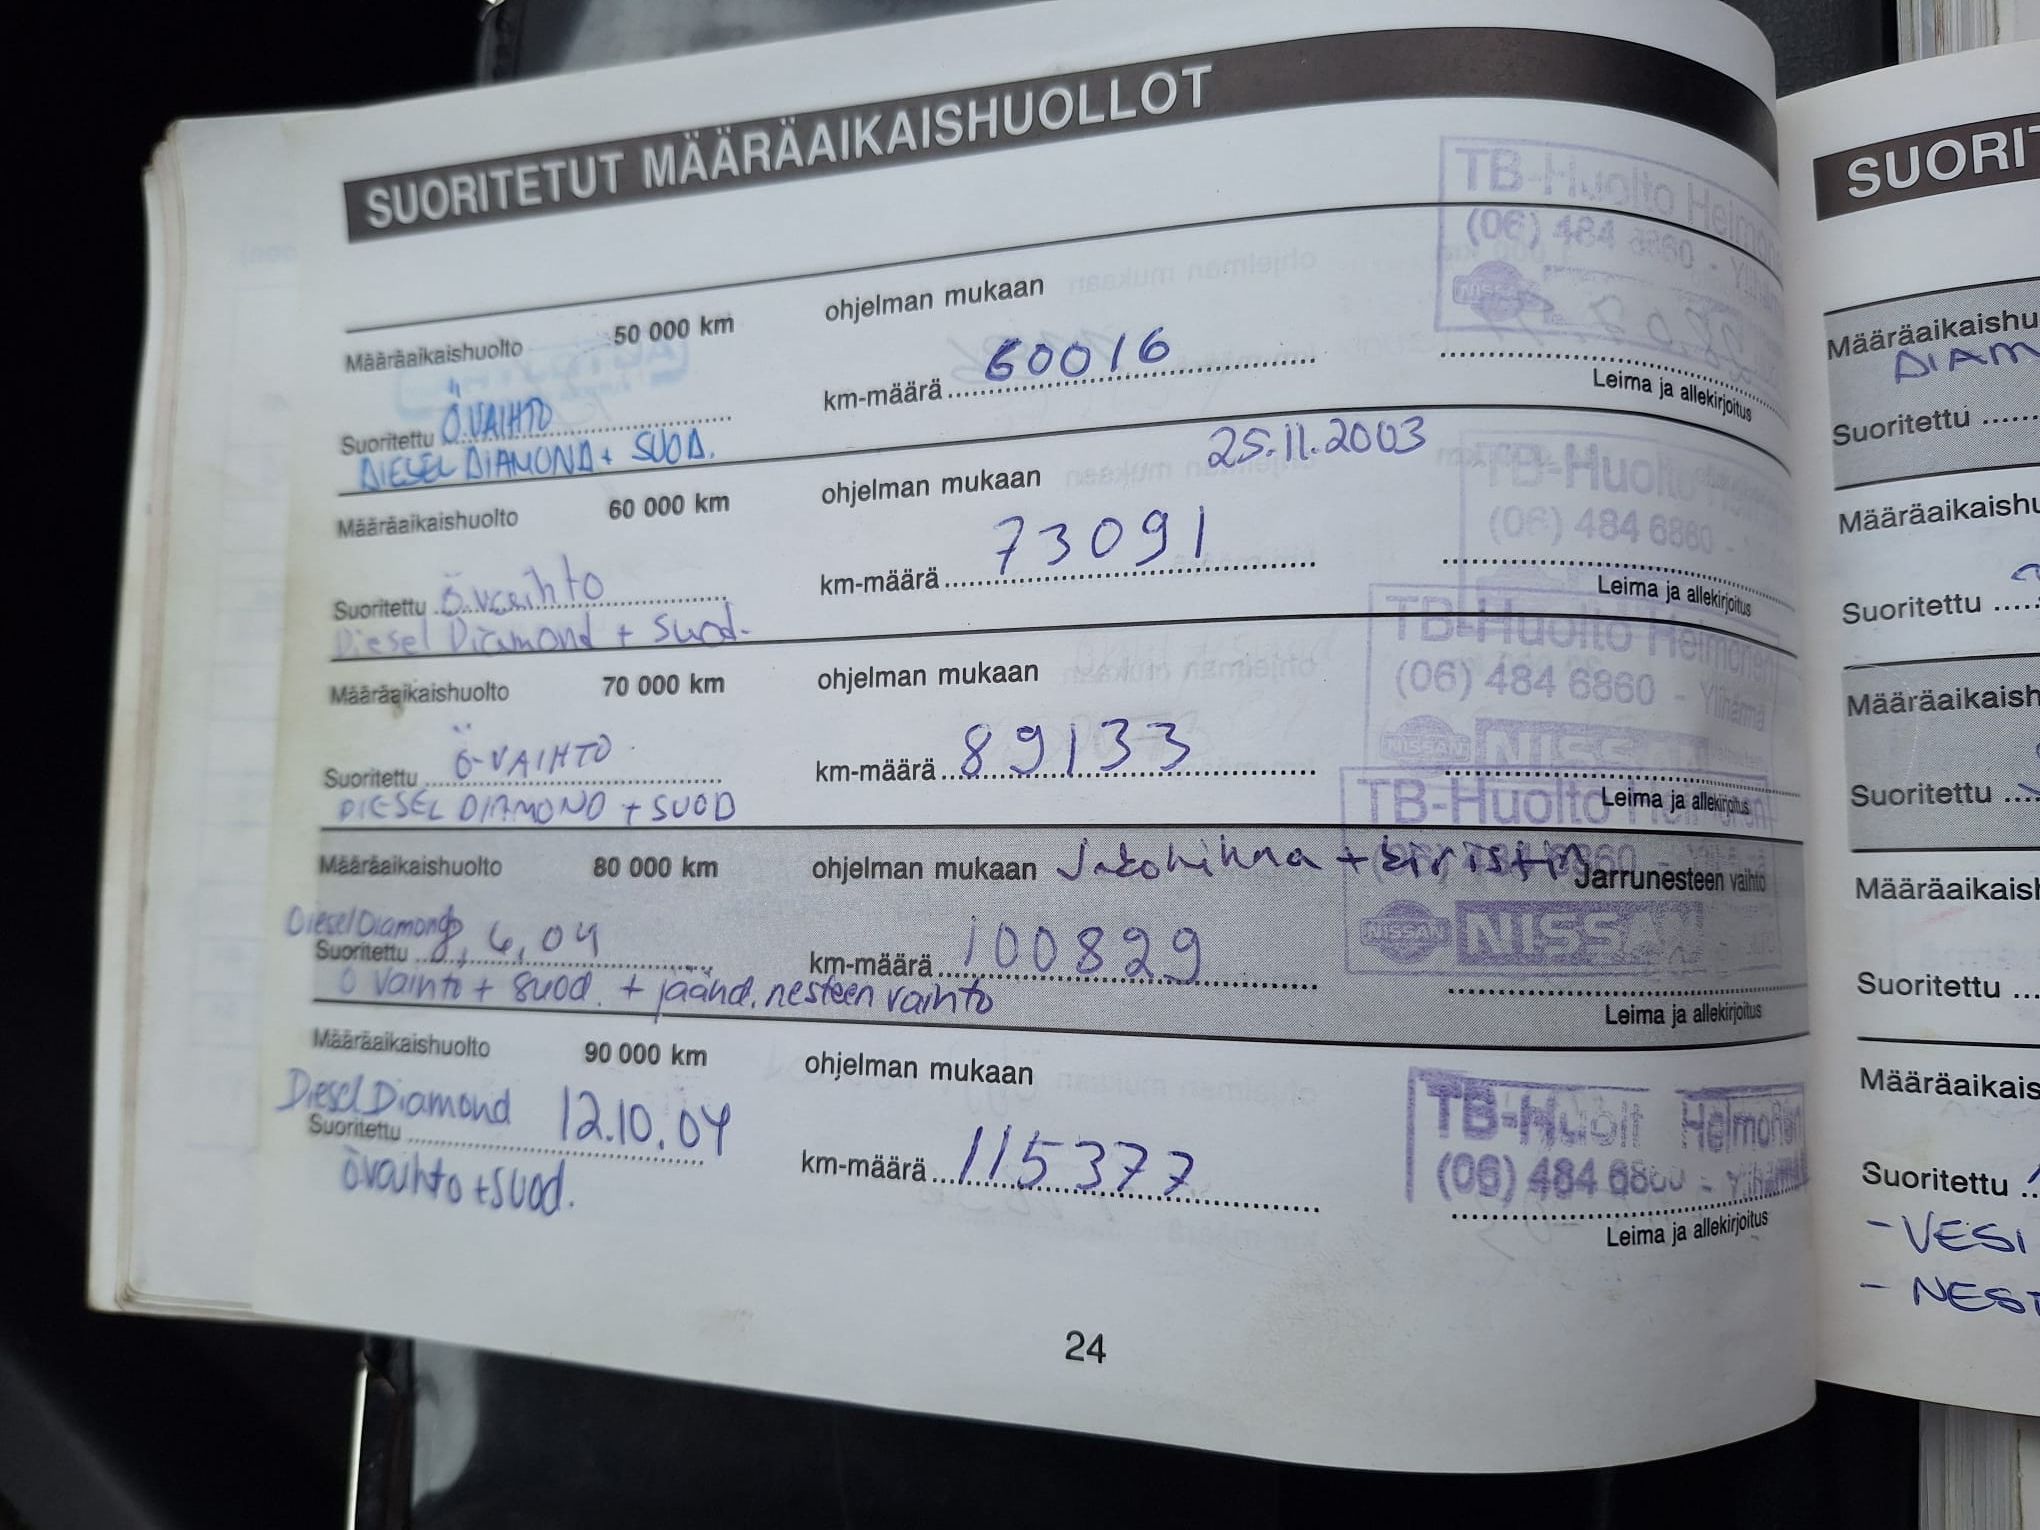 SUORITETUT MÄÄRÄAIKAISHUOLLOT
TB-Huolto
(06) 484 6860 -
NISSAN
Määräaikaishuolto 50 000 km ohjelman mukaan
Suoritettu Ö.VAIHTO km-määrä 60016
DIESEL DIAMOND + SUOD.
Leima ja allekirjoitus
25.11.2003
TB-Huolto
(06) 484 6860 -
Määräaikaishuolto 60 000 km ohjelman mukaan
Suoritettu Ö.vaihto km-määrä 73091
Diesel Diamond + suod.
Leima ja allekirjoitus
TB-Huolto Heimonen
(06) 484 6860 - Ylihärmä
NISSAN NISSAN
Määräaikaishuolto 70 000 km ohjelman mukaan
Suoritettu Ö-VAIHTO km-määrä 89133
DIESEL DIAMOND + SUOD
Leima ja allekirjoitus
TB-Huolto
NISSAN NISSAN
Määräaikaishuolto 80 000 km ohjelman mukaan Jakohihna + Jarrunesteen vaihto
Diesel Diamond
Suoritettu 8,6,04 km-määrä 100829
Ö vaihto + suod. + jäähd. nesteen vaihto
Leima ja allekirjoitus
Määräaikaishuolto 90 000 km ohjelman mukaan
Diesel Diamond 12.10.04
Suoritettu km-määrä 115377
Övaihto + suod.
TB-Huolt Heimonen
(06) 484 6860 - Ylihärmä
Leima ja allekirjoitus
24
SUORIT
Määräaikaishu
DIAM
Suoritettu
Määräaikaishu
Suoritettu
Määräaikaish
Suoritettu
Määräaikaish
Suoritettu
Määräaikais
Suoritettu
- VESI
- NEST